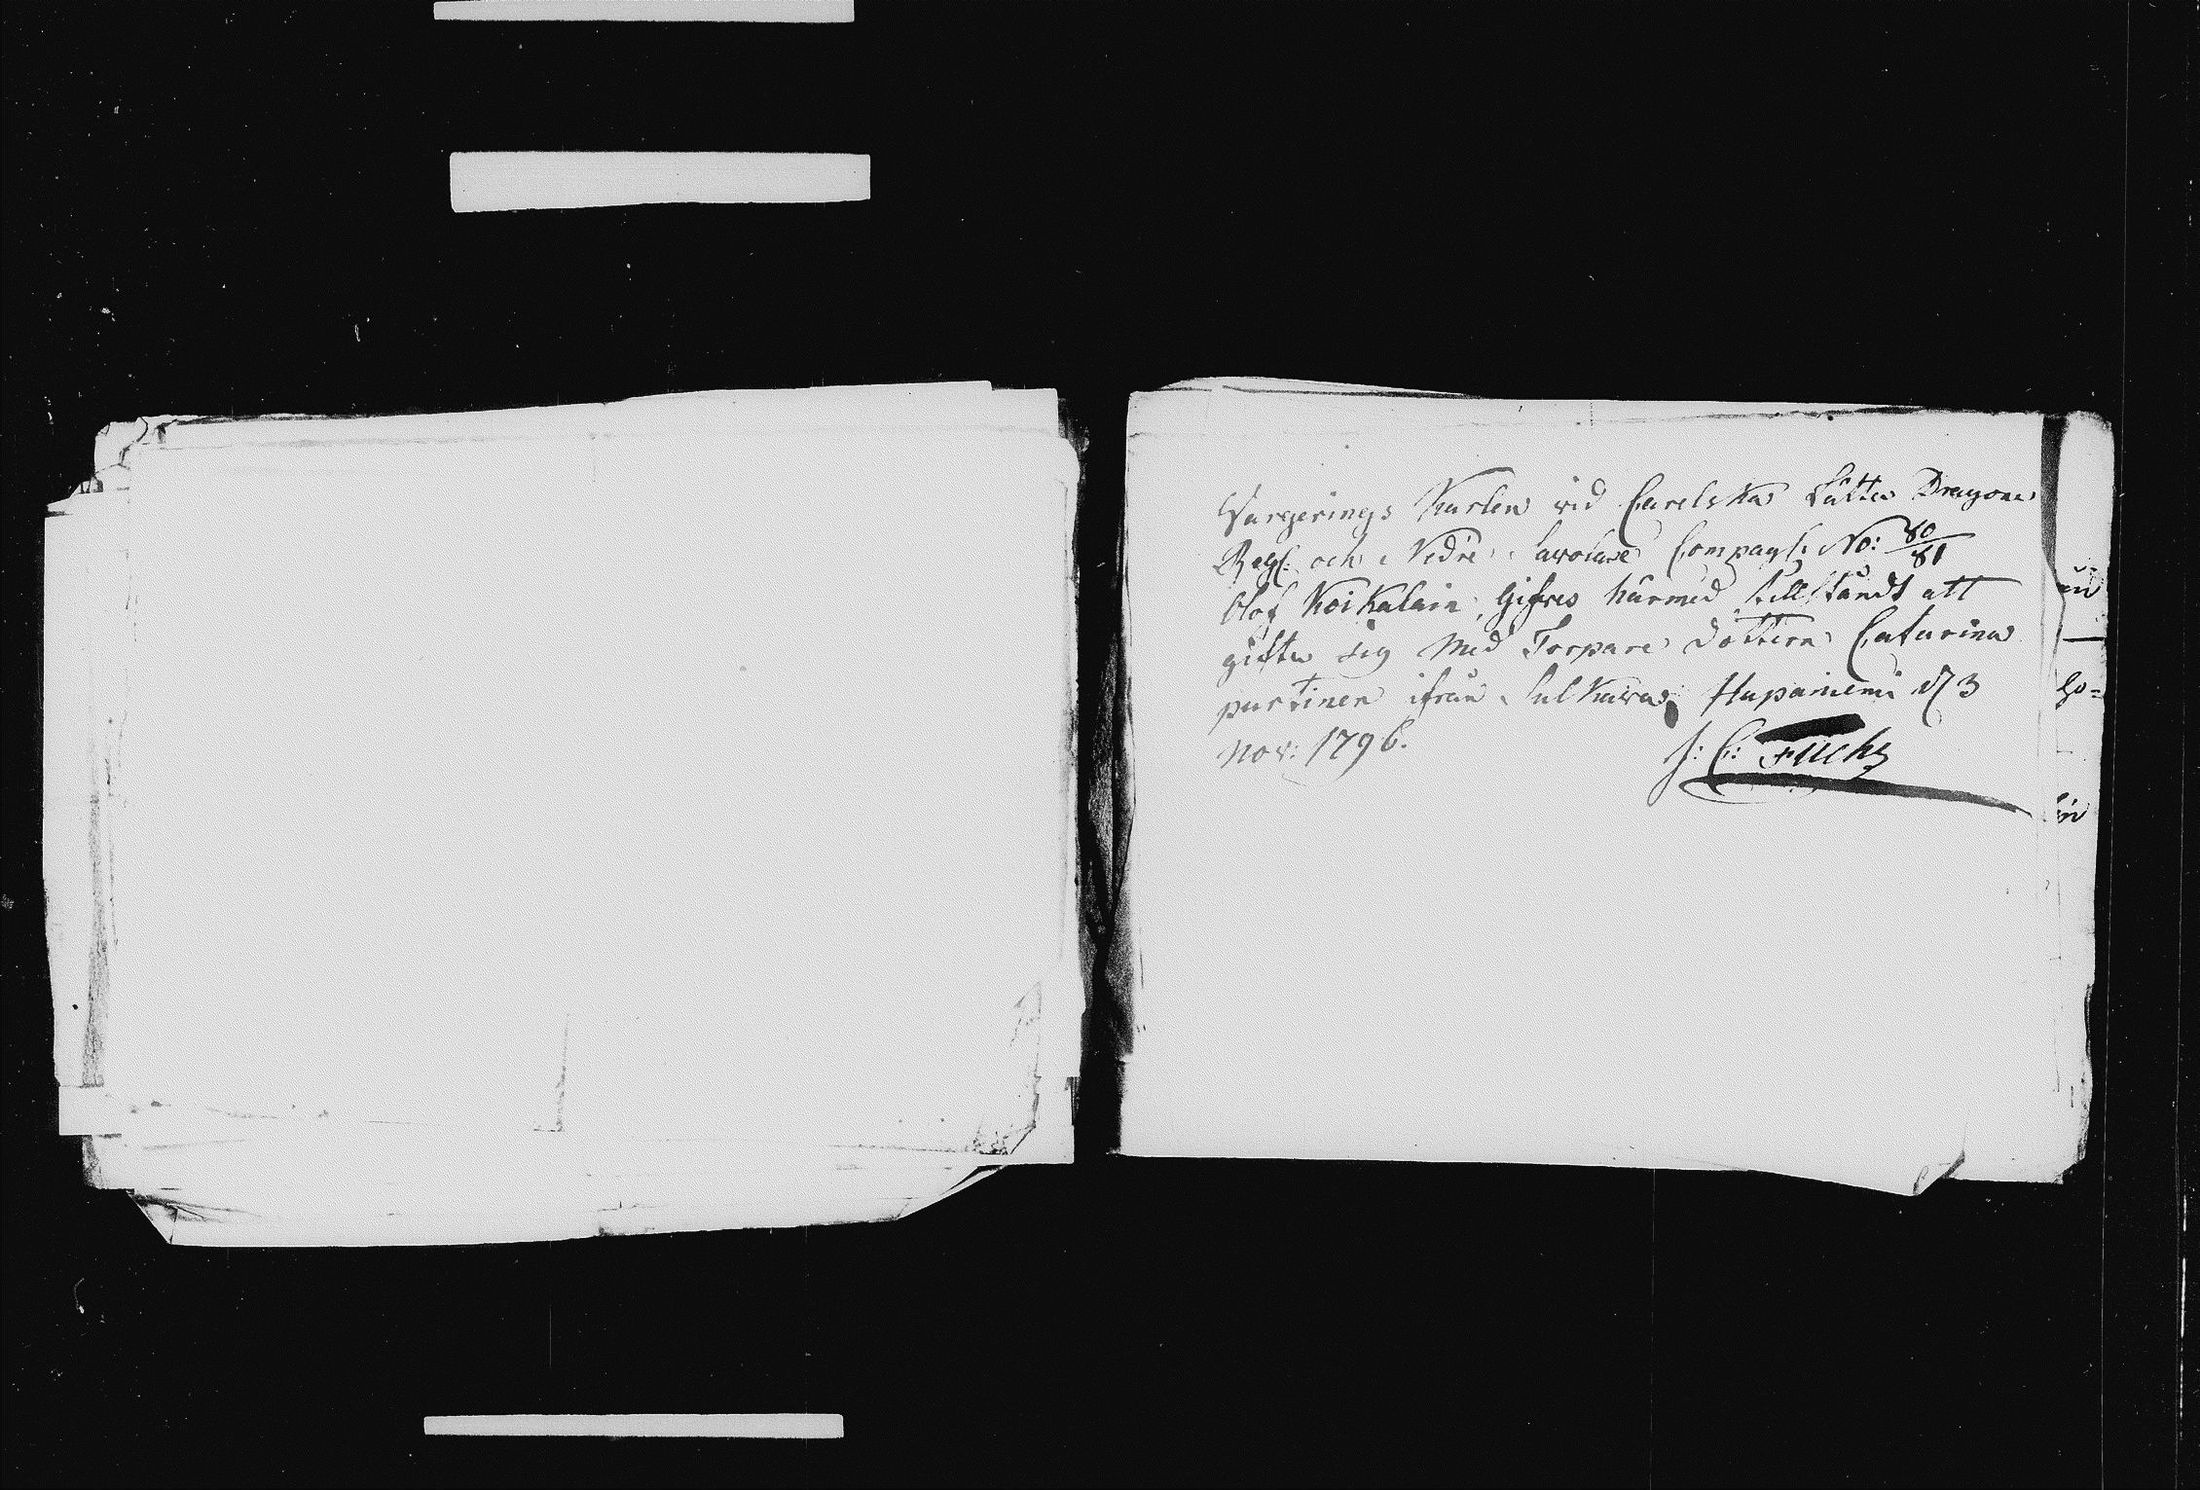 Vargerings Karlen vid Carelska Lätta Dragone
Reg: och Nedre Savolax Compag: No: 80/81
Olof Koikalain, Gifves härmed tillståndt att
gifta sig med Torpare dottern Catarina
partinen ifrån Sulkava, Hapaniemi d 3
Nov: 1796.
J: C: Fuchs